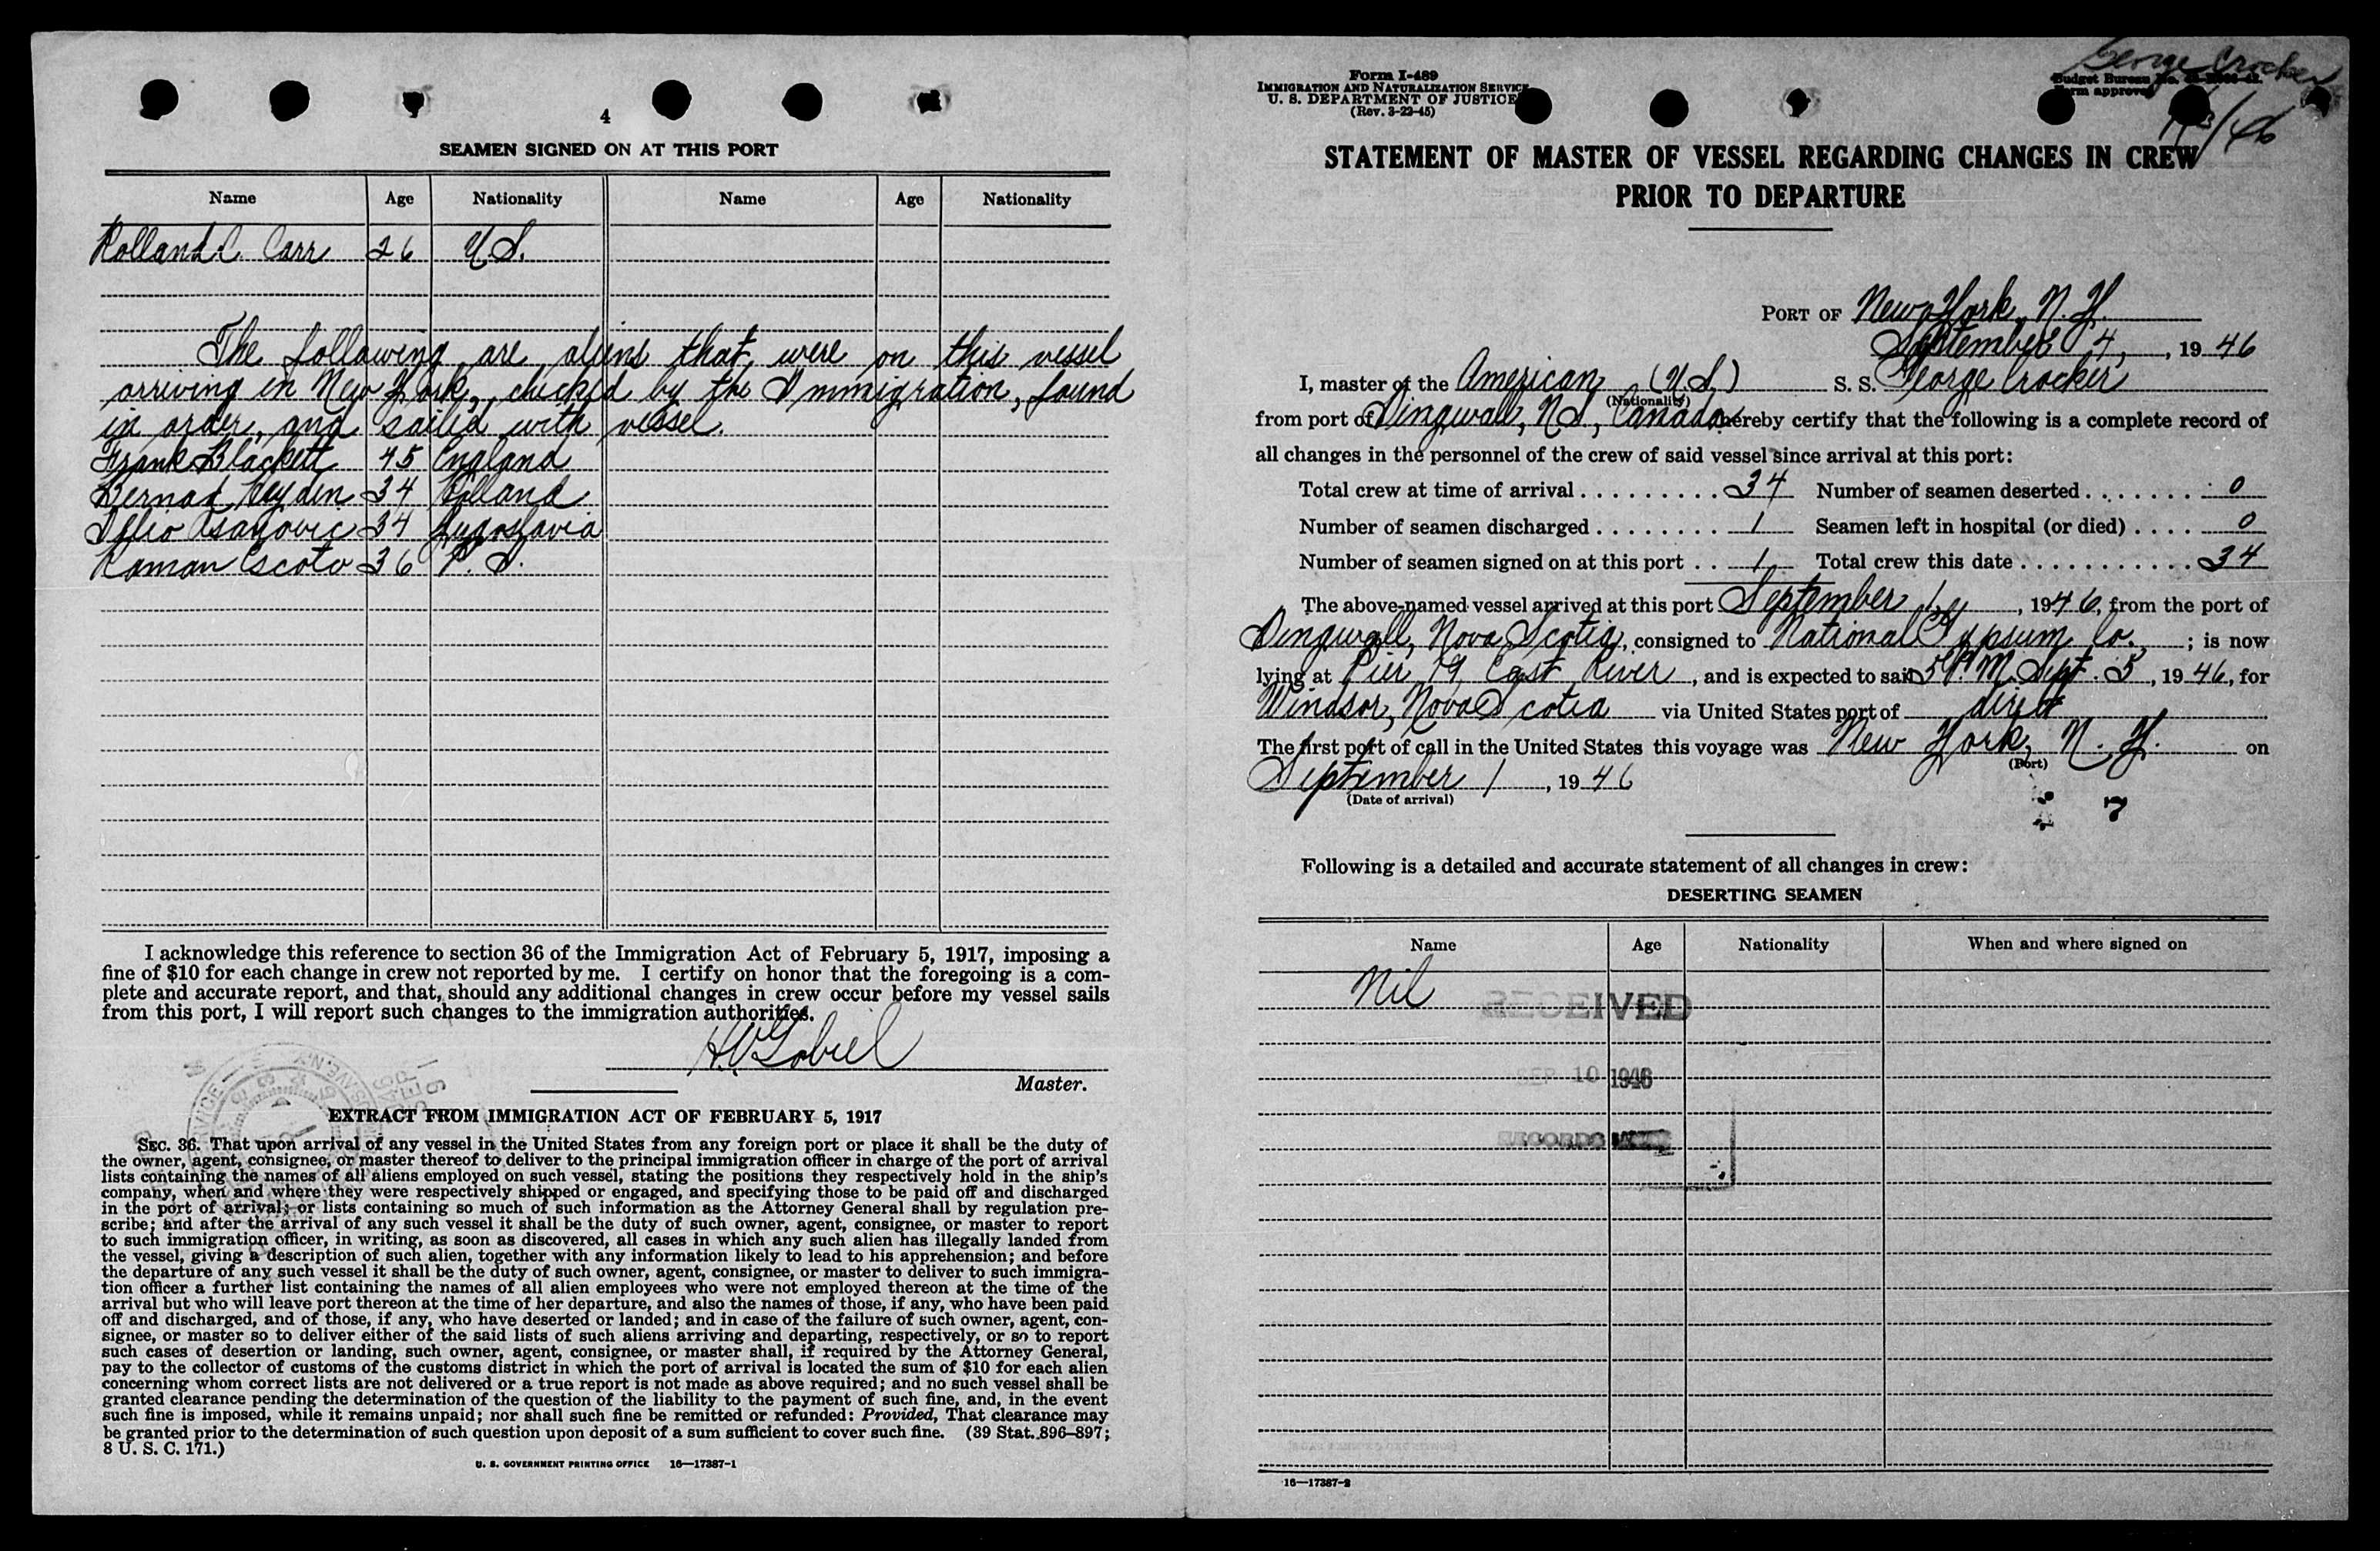 4
SEAMEN SIGNED ON AT THIS PORT
Name Age Nationality Name Age Nationality
Rolland C. Carr 26 U.S.
The following are aliens that were on this vessel
arriving in New York, checked by the Immigration, found
in order, and sailed with vessel.
Frank Blackett 45 England
Bernad Heyden 34 Holland
34 Jugoslavia
Ramon Escoto 36 P. I.
I acknowledge this reference to section 36 of the Immigration Act of February 5, 1917, imposing a
fine of $10 for each change in crew not reported by me. I certify on honor that the foregoing is a com-
plete and accurate report, and that, should any additional changes in crew occur before my vessel sails
from this port, I will report such changes to the immigration authorities.
Master.
EXTRACT FROM IMMIGRATION ACT OF FEBRUARY 5, 1917
SEC. 36. That upon arrival of any vessel in the United States from any foreign port or place it shall be the duty of
the owner, agent, consignee, or master thereof to deliver to the principal immigration officer in charge of the port of arrival
lists containing the names of all aliens employed on such vessel, stating the positions they respectively hold in the ship's
company, when and where they were respectively shipped or engaged, and specifying those to be paid off and discharged
in the port of arrival; or lists containing so much of such information as the Attorney General shall by regulation pre-
scribe; and after the arrival of any such vessel it shall be the duty of such owner, agent, consignee, or master to report
to such immigration officer, in writing, as soon as discovered, all cases in which any such alien has illegally landed from
the vessel, giving a description of such alien, together with any information likely to lead to his apprehension; and before
the departure of any such vessel it shall be the duty of such owner, agent, consignee, or master to deliver to such immigra-
tion officer a further list containing the names of all alien employees who were not employed thereon at the time of the
arrival but who will leave port thereon at the time of her departure, and also the names of those, if any, who have been paid
off and discharged, and of those, if any, who have deserted or landed; and in case of the failure of such owner, agent, con-
signee, or master so to deliver either of the said lists of such aliens arriving and departing, respectively, or so to report
such cases of desertion or landing, such owner, agent, consignee, or master shall, if required by the Attorney General,
pay to the collector of customs of the customs district in which the port of arrival is located the sum of $10 for each alien
concerning whom correct lists are not delivered or a true report is not made as above required; and no such vessel shall be
granted clearance pending the determination of the question of the liability to the payment of such fine, and, in the event
such fine is imposed, while it remains unpaid; nor shall such fine be remitted or refunded: Provided, That clearance may
be granted prior to the determination of such question upon deposit of a sum sufficient to cover such fine. (39 Stat. 896–897;
8 U. S. C. 171.)
U. S. GOVERNMENT PRINTING OFFICE 16—17387-1
George Crocker
Form I-489
IMMIGRATION AND NATURALIZATION SERVICE
U. S. DEPARTMENT OF JUSTICE
(Rev. 3-22-45)
Budget Bureau No.
Form approved
STATEMENT OF MASTER OF VESSEL REGARDING CHANGES IN CREW
PRIOR TO DEPARTURE
PORT OF New York, N.Y.
September 4, , 19 46
I, master of the American (U.S.) S. S. George Crocker
(Nationality)
from port of Dingwall, N.S., Canada hereby certify that the following is a complete record of
all changes in the personnel of the crew of said vessel since arrival at this port:
Total crew at time of arrival 34 Number of seamen deserted 0
Number of seamen discharged 1 Seamen left in hospital (or died) 0
Number of seamen signed on at this port 1 Total crew this date 34
The above-named vessel arrived at this port September 1, , 1946, from the port of
Dingwall, Nova Scotia, consigned to National Gypsum Co. ; is now
lying at Pier 19 East River, and is expected to sail 5 P.M. Sept. 5, 1946, for
Windsor, Nova Scotia via United States port of direct
The first port of call in the United States this voyage was New York, N.Y. on
(Port)
September 1, 1946
(Date of arrival)
7
Following is a detailed and accurate statement of all changes in crew:
DESERTING SEAMEN
Name Age Nationality When and where signed on
Nil
RECEIVED
SEP 10 1946
RECORDS
16—17387-2